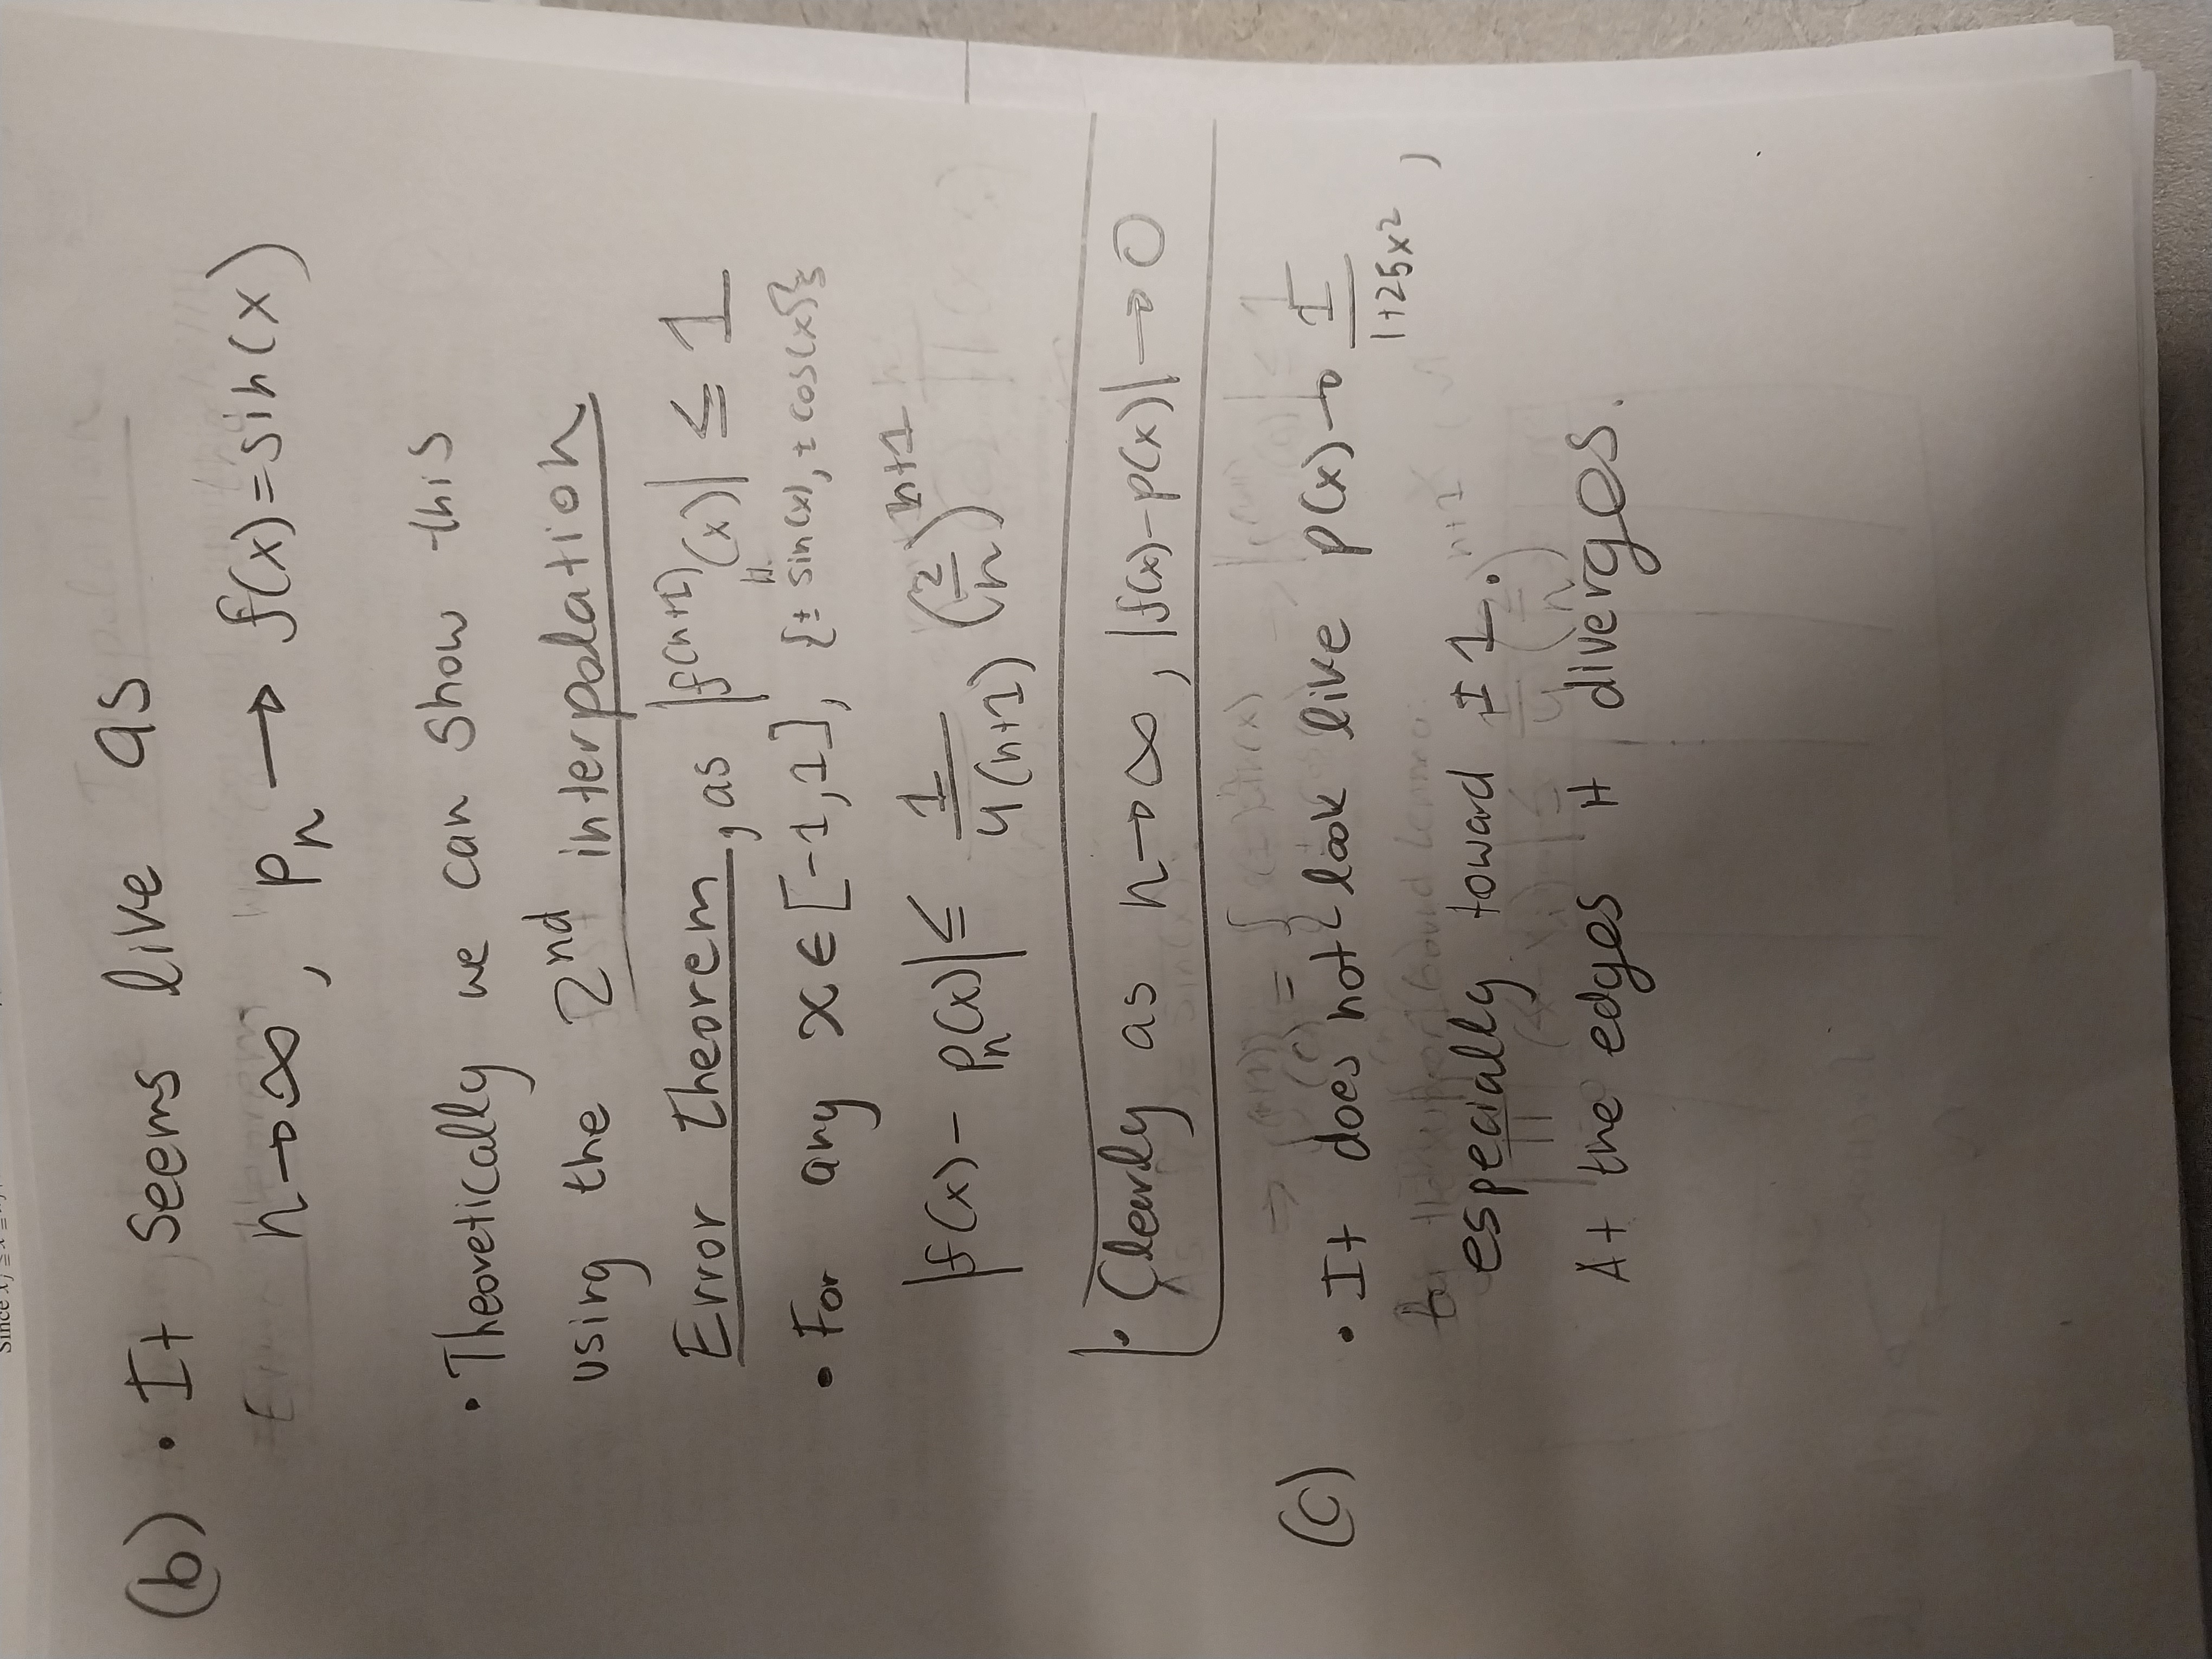 Since
(b) • It seems live as
n→∞, pₙ → f(x)=sin(x)
• Theoretically we can show this
using the 2nd interpolation
Error theorem, as |f⁽ⁿ⁺¹⁾(x)| ≤ 1
• For any x∈[-1,1], {± sin(x), ± cos(x)}
|f(x) - pₙ(x)| ≤ 1/4(n+1) (2/n)ⁿ⁺¹
• Clearly as n→∞, |f(x)-p(x)|→0
(c) • It does not look like p(x)→ 1/1+25x²,
especially toward ±1.
At the edges it diverges.